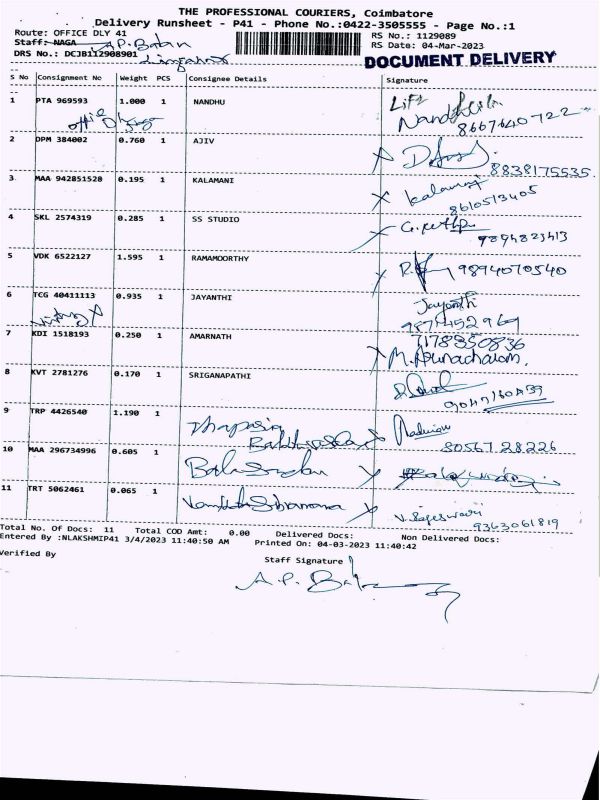 THE PROFESSIONAL COURIERS, Coimbatore
Delivery Runsheet - P41 - Phone No.:0422-3505555 - Page No.:1
Route: OFFICE DLY 41 RS No.: 1129089
Staff: NAGA A.P. Balan RS Date: 04-Mar-2023
DRS No.: DCJB112908901 DOCUMENT DELIVERY
S No Consignment No Weight PCS Consignee Details Signature
1 PTA 969593 1.000 1 NANDHU
8667640722
2 DPM 384002 0.760 1 AJIV
8838175535
3 MAA 942851528 0.195 1 KALAMANI kalamani
8610513405
4 SKL 2574319 0.285 1 SS STUDIO
9894823413
5 VDK 6522127 1.595 1 RAMAMOORTHY 9894070540
6 TCG 40411113 0.935 1 JAYANTHI Jayanthi
7 KDI 1518193 0.250 1 AMARNATH 7178850836
M. Arunachalam.
8 KVT 2781276 0.170 1 SRIGANAPATHI
9 TRP 4426540 1.190 1
8056728226
10 MAA 296734996 0.605 1
11 TRT 5062461 0.065 1 V. Rajeswari
9363061819
Total No. Of Docs: 11 Total COD Amt: 0.00 Delivered Docs: Non Delivered Docs:
Entered By :NLAKSHMIP41 3/4/2023 11:40:50 AM Printed On: 04-03-2023 11:40:42
Verified By Staff Signature
A.P. Balan